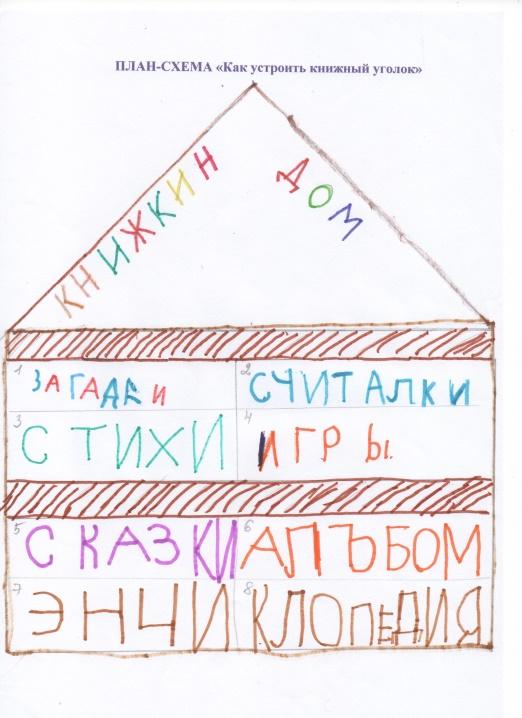 ПЛАН-СХЕМА «Как устроить книжный уголок»
КНИЖКИН ДОМ
1 ЗАГАДКИ 2 СЧИТАЛКИ
3 СТИХИ 4 ИГРЫ.
5 СКАЗКИ 6 АЛЪБОМ
7 ЭНЧИ 8 КЛОПЕДИЯ